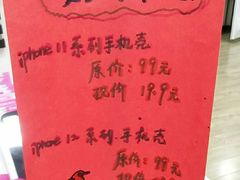 iphone 11 系列手机壳
原价：99元
现价 19.9元
iphone 12 系列手机壳
原价：99元